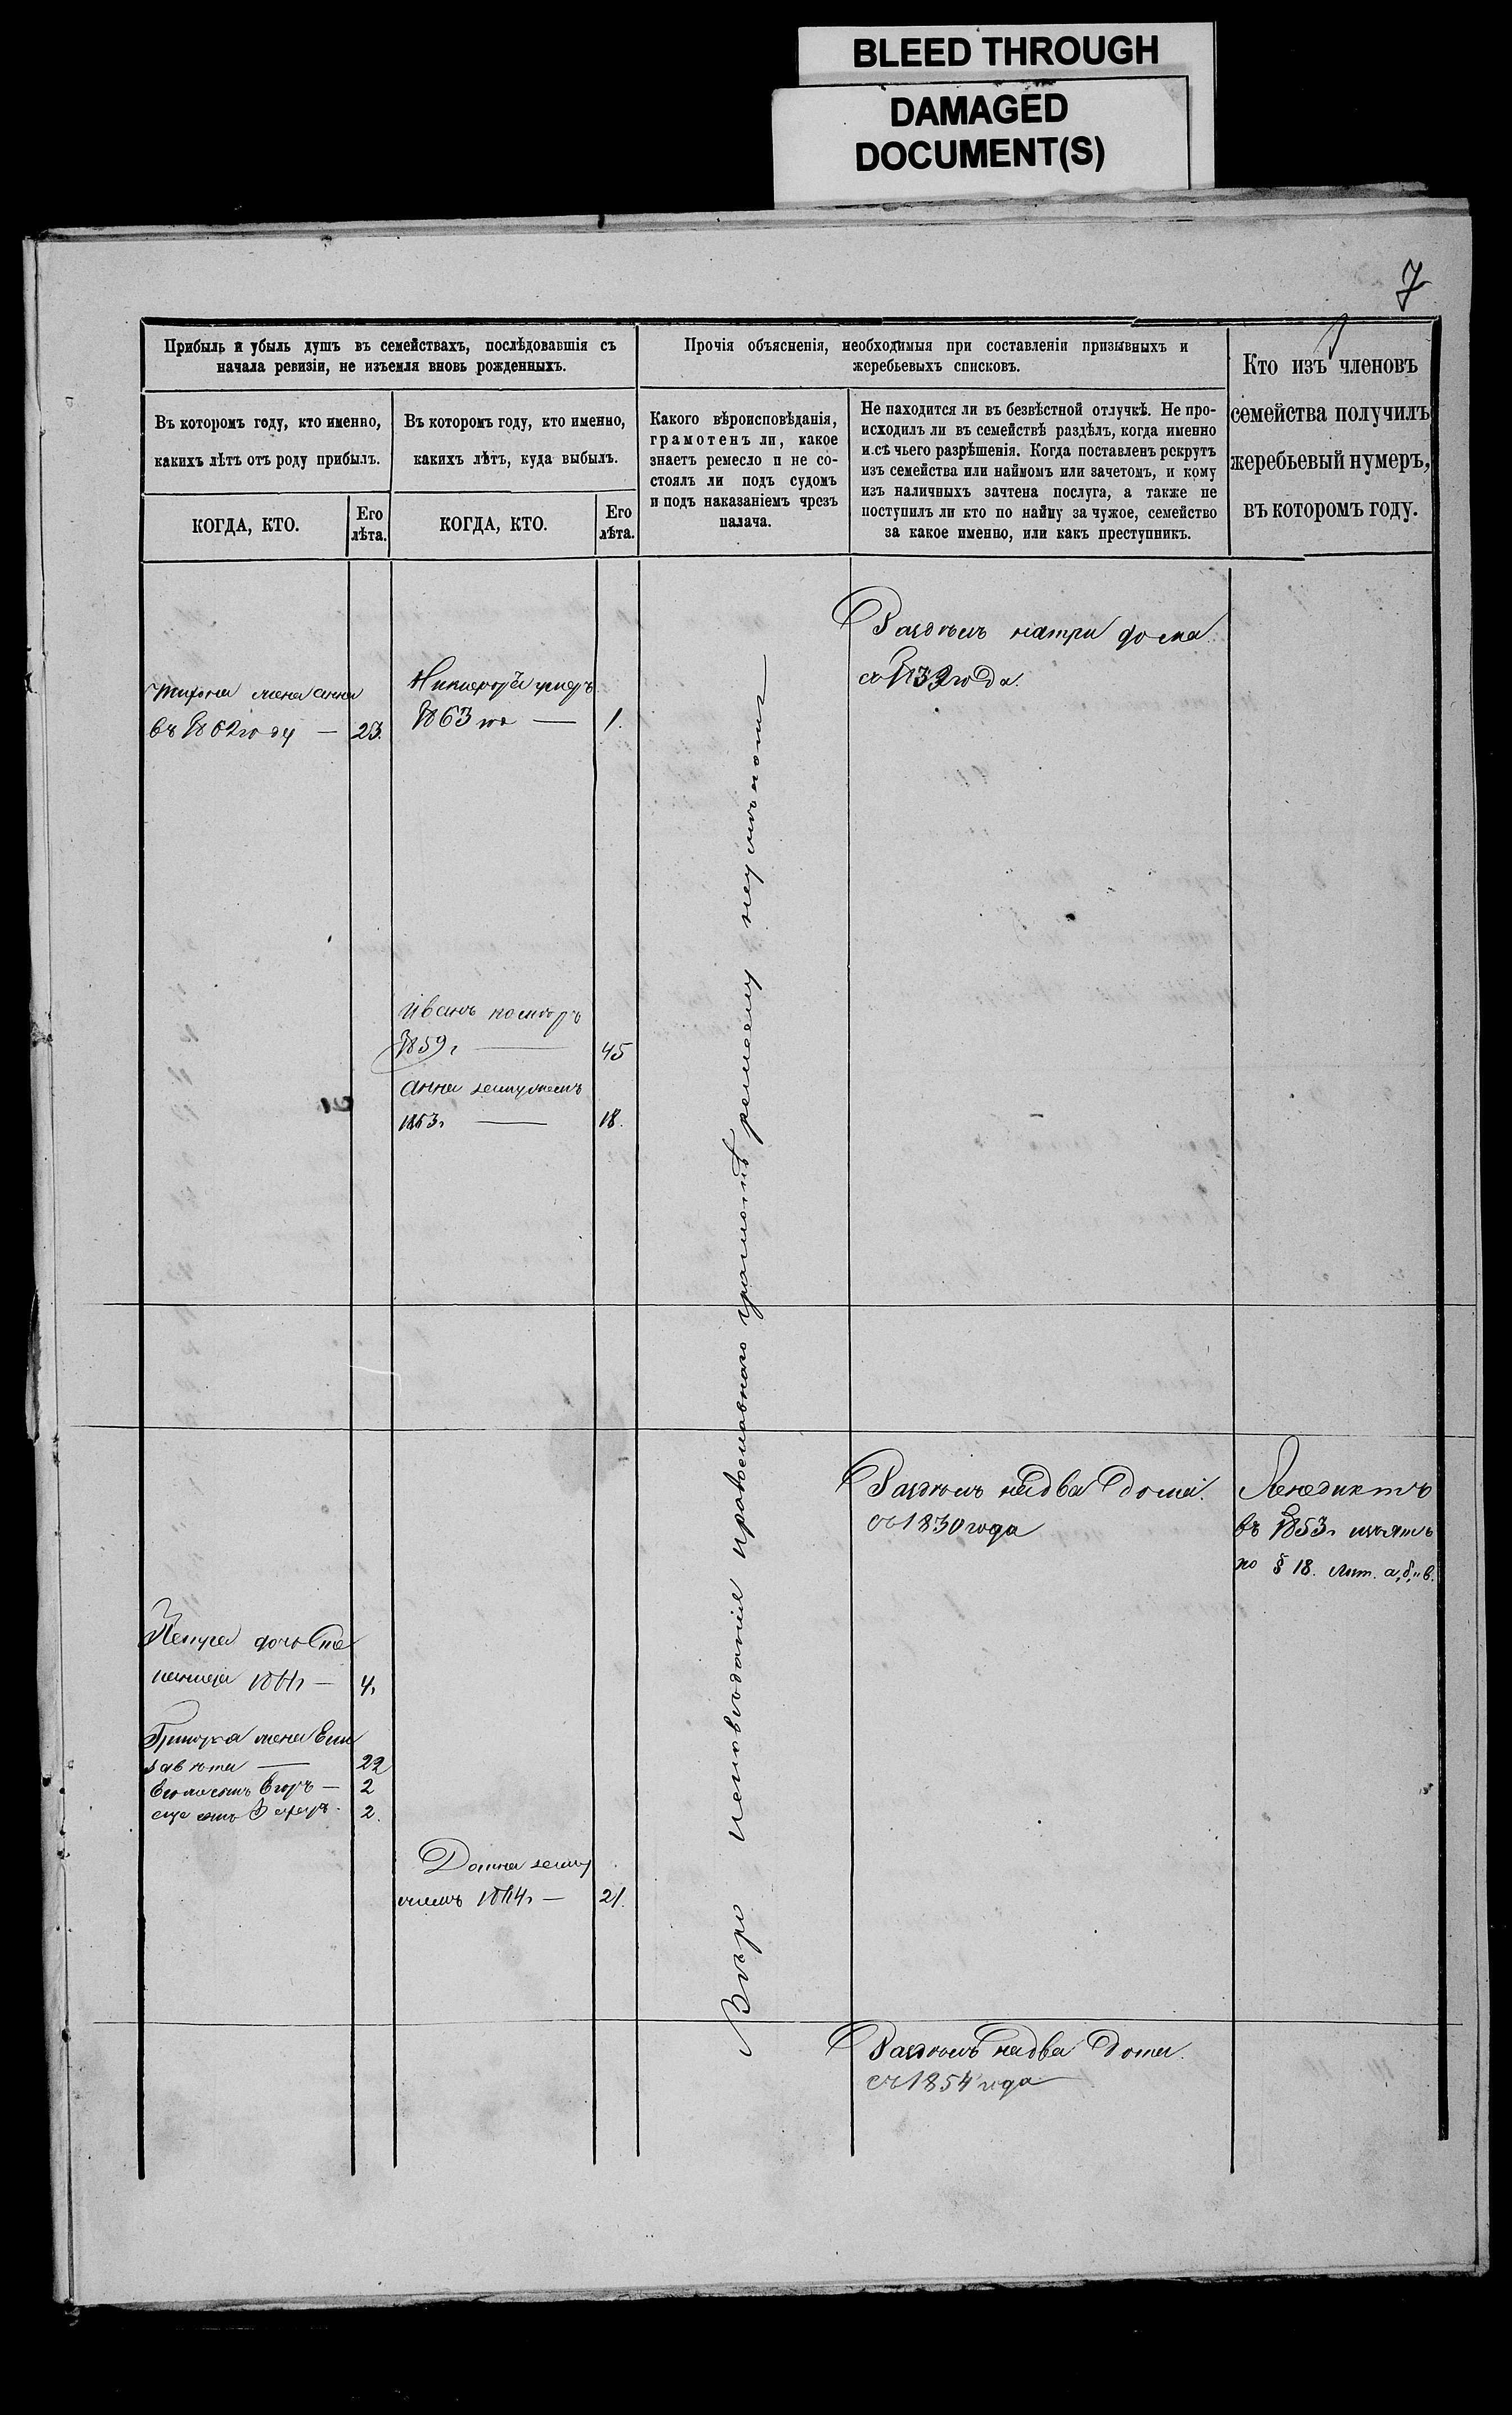 BLEED THROUGH
DAMAGED
DOCUMENT(S)
7
Прибыль и убыль душъ въ семействахъ, послѣдовавшія съ
начала ревизіи, не изъемля вновь рожденныхъ.
Прочія объясненія, необходимыя при составленіи призывныхъ и
жеребьевыхъ списковъ.
Кто изъ членовъ
семейства получилъ
жеребьевый нумеръ,
въ которомъ году.
Въ которомъ году, кто именно,
какихъ лѣтъ отъ роду прибылъ.
Въ которомъ году, кто именно,
какихъ лѣтъ, куда выбылъ.
Какого вѣроисповѣданія,
грамотенъ ли, какое
знаетъ ремесло и не со-
стоялъ ли подъ судомъ
и подъ наказаніемъ чрезъ
палача.
Не находится ли въ безвѣстной отлучкѣ. Не про-
исходилъ ли въ семействѣ раздѣлъ, когда именно
и съ чьего разрѣшенія. Когда поставленъ рекрутъ
изъ семейства или наймомъ или зачетомъ, и кому
изъ наличныхъ зачтена послуга, а также не
поступилъ ли кто по найму за чужое, семейство
за какое именно, или какъ преступникъ.
КОГДА, КТО.
Его
лѣта.
КОГДА, КТО.
Его
лѣта.
Раздѣлъ натри дома
съ 1839 года.
жена анна
въ 1862 году — 23.
Никифоръ умеръ
1863 го — 1.
Иванъ померъ
1859 г — 45
анна замужемъ
1863 г — 18.
вѣро исповѣданія православнаго грамотѣ ремеслу неумѣютъ
Раздѣлъ надва дома.
съ 1830 года
въ 1853 г изъятъ
по § 18. лит. а, б, и в.
дочь Сте
4.
Григорья жена Ели
завета — 22
Егоръ — 2
еще сынъ 2.
Домна заму
жемъ 1864 г — 21.
Раздѣлъ надва дома.
съ 1854 года